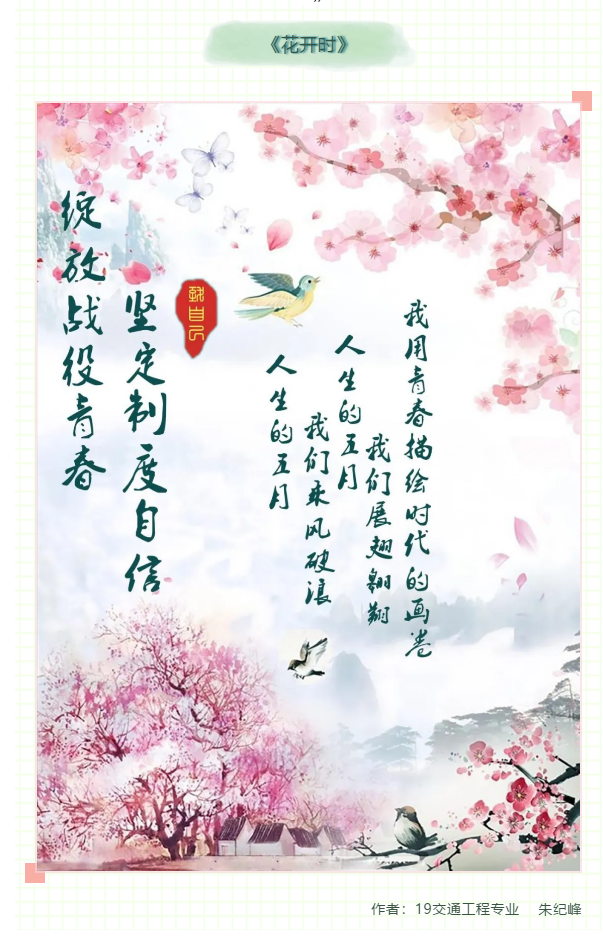 《花开时》
绽放战役青春
坚定制度自信
致自己
人生的五月
我们乘风破浪
人生的五月
我们展翅翱翔
我用青春描绘时代的画卷
作者：19交通工程专业 朱纪峰